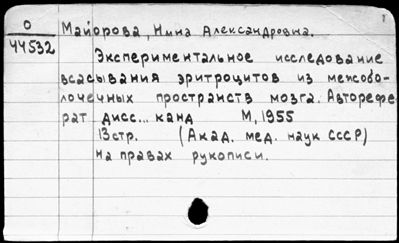 О
44532
Майорова, Нина Александровна.
Экспериментальное исследование
всасывания эритроцитов из межобо-
лочечных пространств мозга. Авторефе-
рат дисс... канд М, 1955
13стр. (Акад. мед. наук СССР)
На правах рукописи.